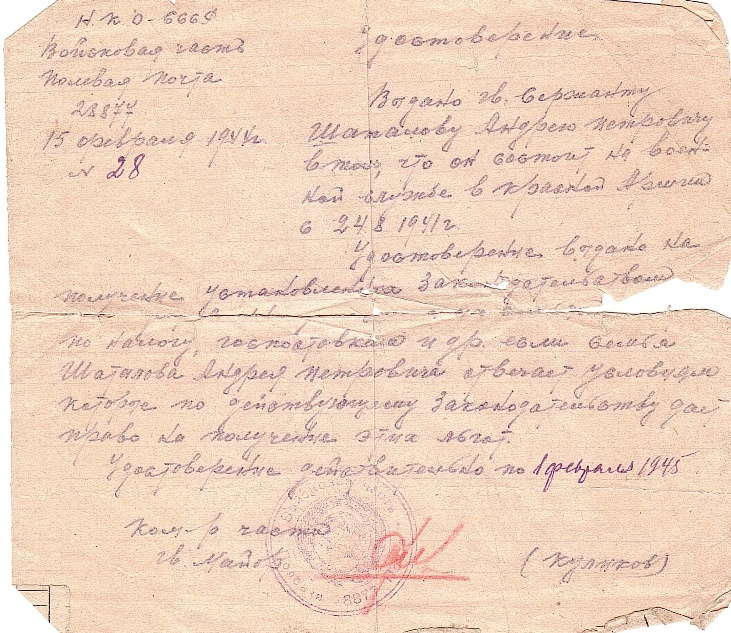 Н К О - СССР
Войсковая часть
Полевая почта
28877
15 февраля 1944 г.
N 28
Удостоверение
Выдано гв. Сержанту
Шаталову Андрею Петровичу
в том, что он состоит на воен-
ной службе в Красной Армии
с 24.8 1941 г.
Удостоверение выдано на
получение установленных Законодательством
по налогу, госпоставкам и др. если семья
Шаталова Андрея Петровича отвечает условиям
которые по действующему Законодательству дает
право на получение этих льгот.
Удостоверение действительно по 1 февраля 1945
Ком-р части
гв. Майор (Куликов)